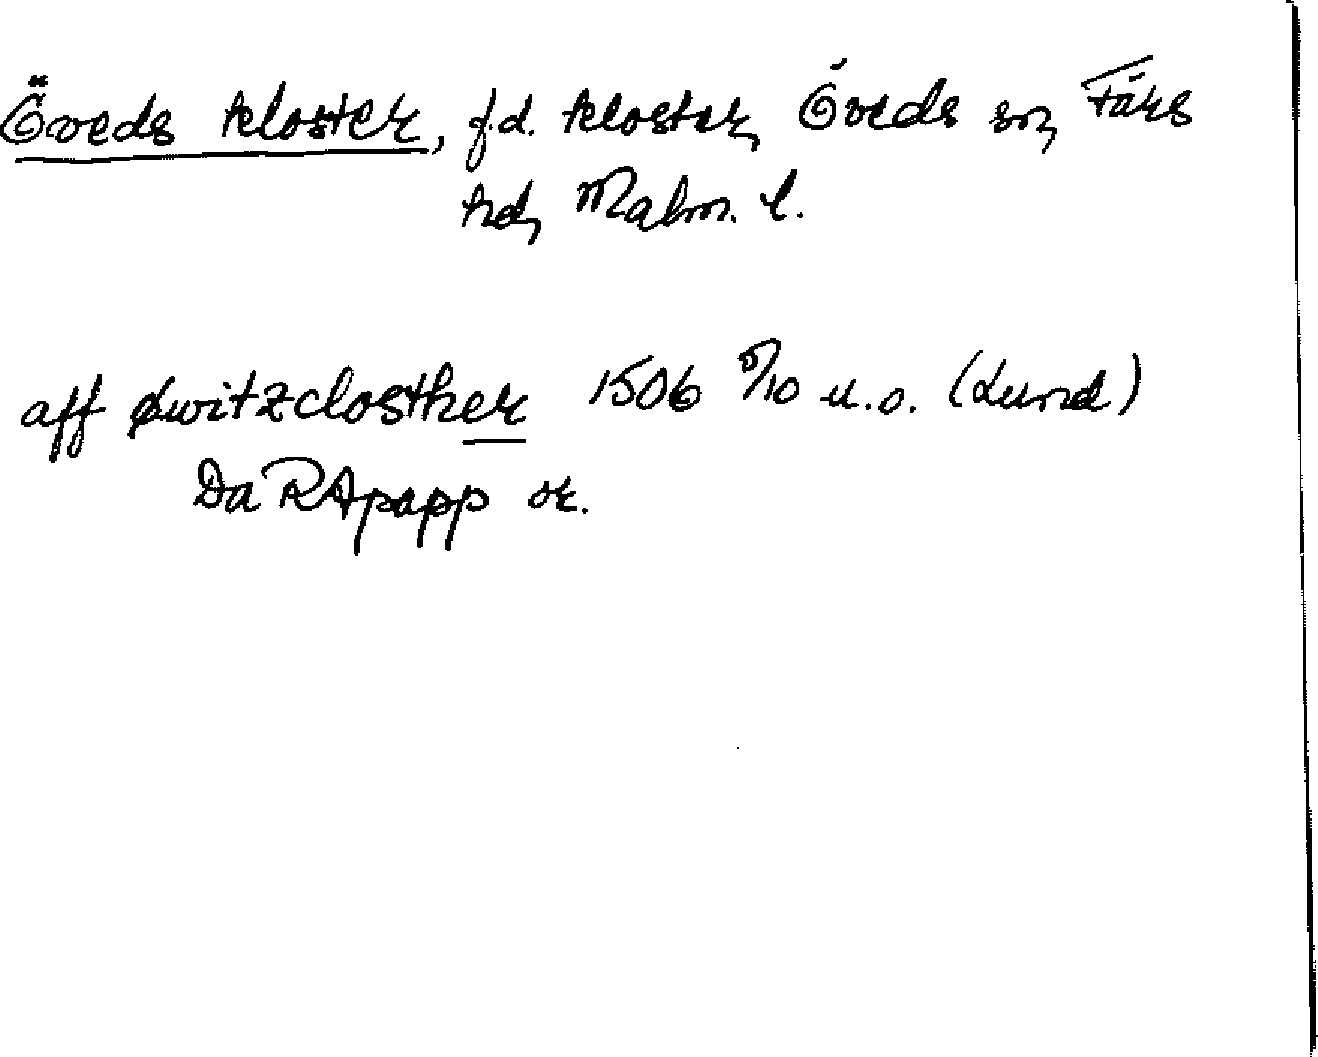 Öveds kloster, f.d. kloster, Öveds sn, Färs
hd, Malm. l.
aff øwitzclosther 1506 5/10 u.o. (Lund)
Da RA papp or.